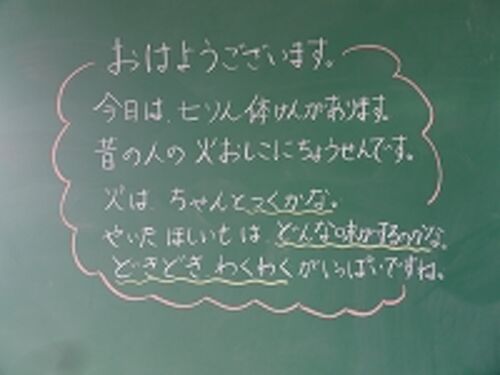 おはようございます。
今日は、七りん体けんがあります。
昔の人の火おしこにちょうせんです。
火は、ちゃんとつくかな。
やいたほしいもは、どんな味がするのかな。
どきどきわくわくがいっぱいですね。